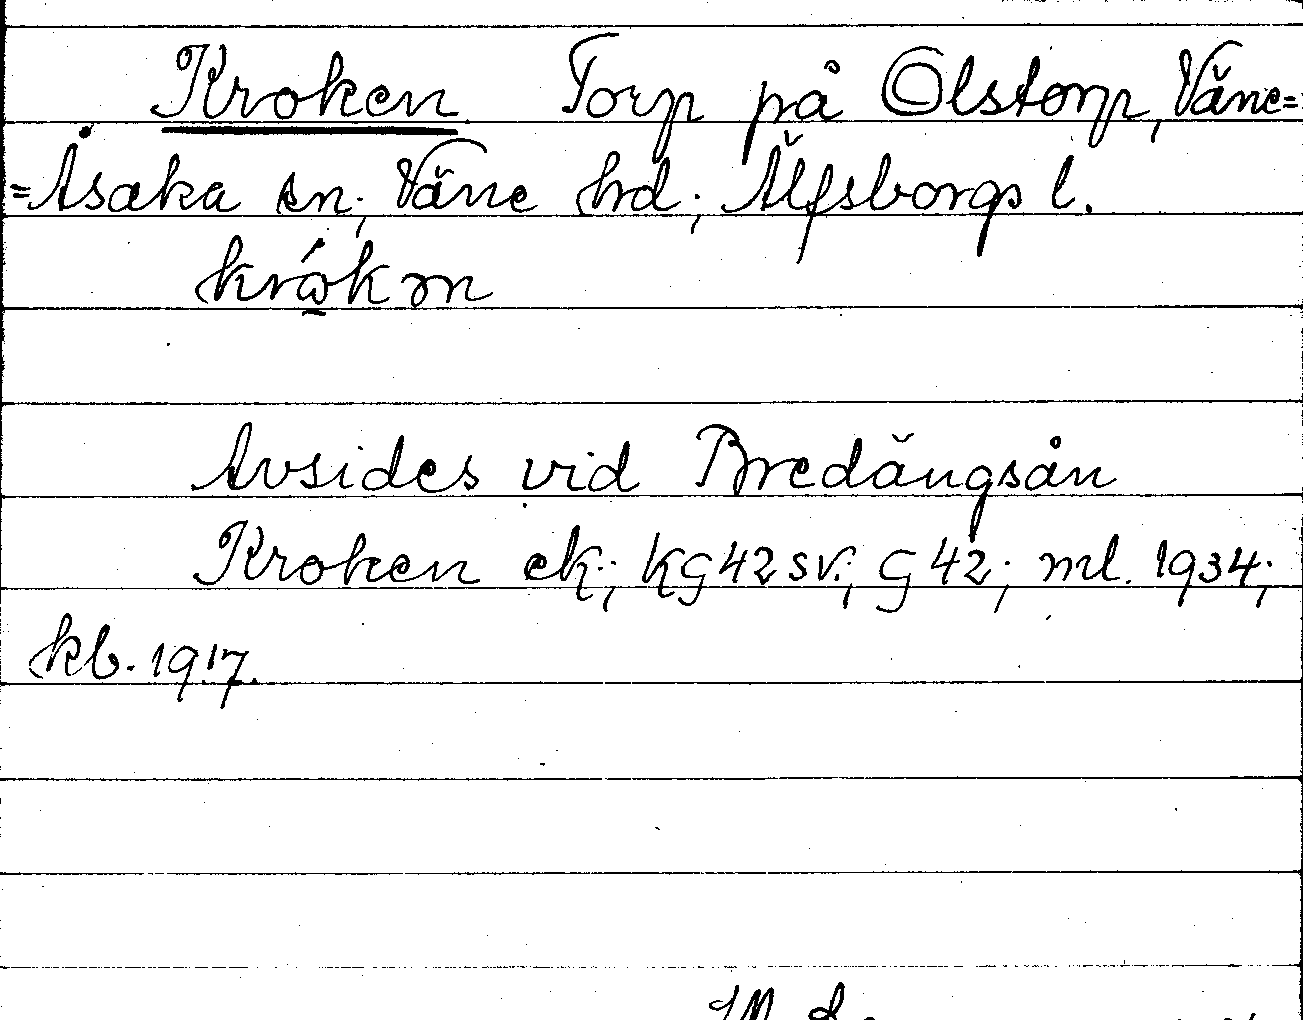 Kroken Torp på Olstorp, Väne=
=Åsaka sn; Väne hd; Älfsborgs l.
Avsides vid Bredängsån
Kroken ek; kg 42 sv.; g 42; ml. 1934;
kb. 1917.